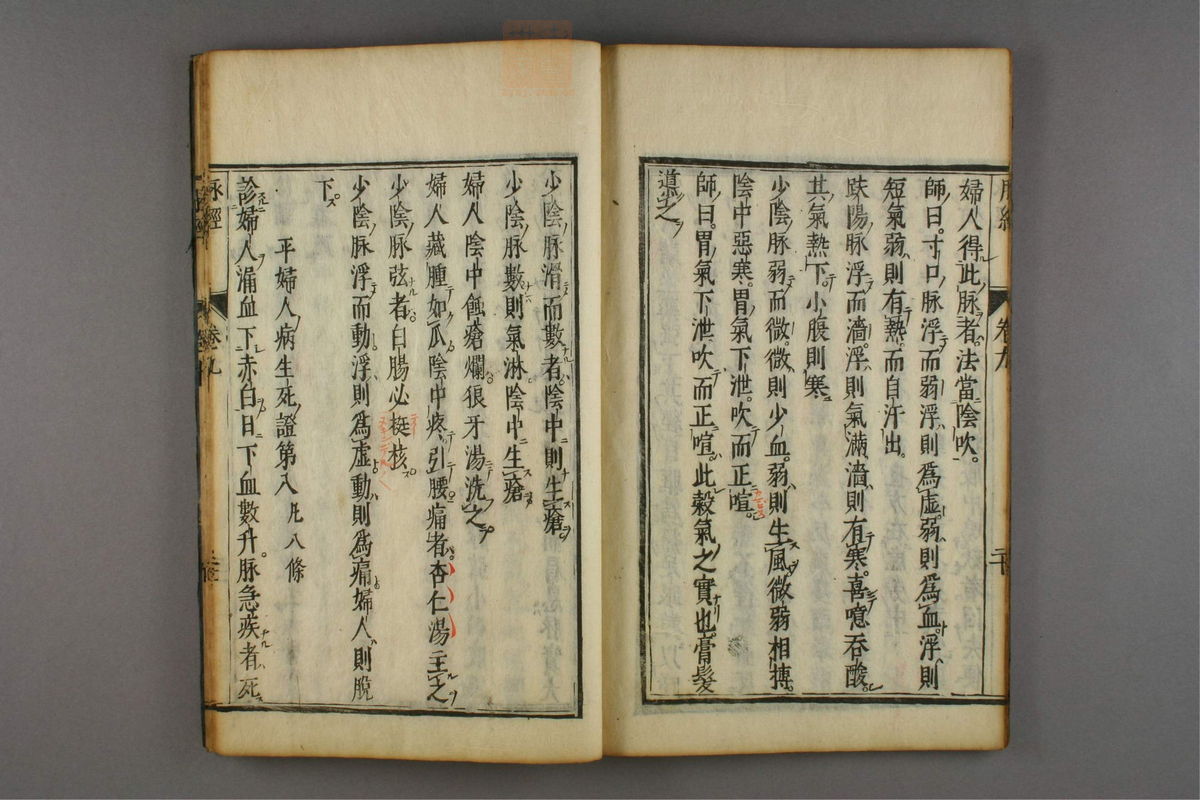 婦人得此脉者。法當陰吹。
師曰。寸口脉浮而弱。浮則爲虛。弱則爲血。浮則
短氣。弱則有熱。而自汗出。
趺陽脉浮而濇。浮則氣滿。濇則有寒。喜噫吞酸。
其氣熱下。小腹則寒
少陰脉弱而微。微則少血。弱則生風。微弱相搏。
陰中惡寒。胃氣下泄。吹而正喧。
師曰。胃氣下泄。吹而正喧。此穀氣之實也。膏髮
導之
少陰脉滑而數者。陰中則生瘡
少陰脉數。則氣淋。陰中生瘡
婦人陰中蝕瘡爛。狼牙湯洗之
婦人藏腫如瓜。陰中疼。引腰痛者。杏仁湯主之
少陰脉弦者。白腸必挺核。
少陰脉浮而動。浮則爲虛。動則爲痛。婦人則脫
下。
平婦人病生死證第八 凡八條
診婦人漏血。下赤白。日下血數升。脉急疾者。死
脉經
卷九